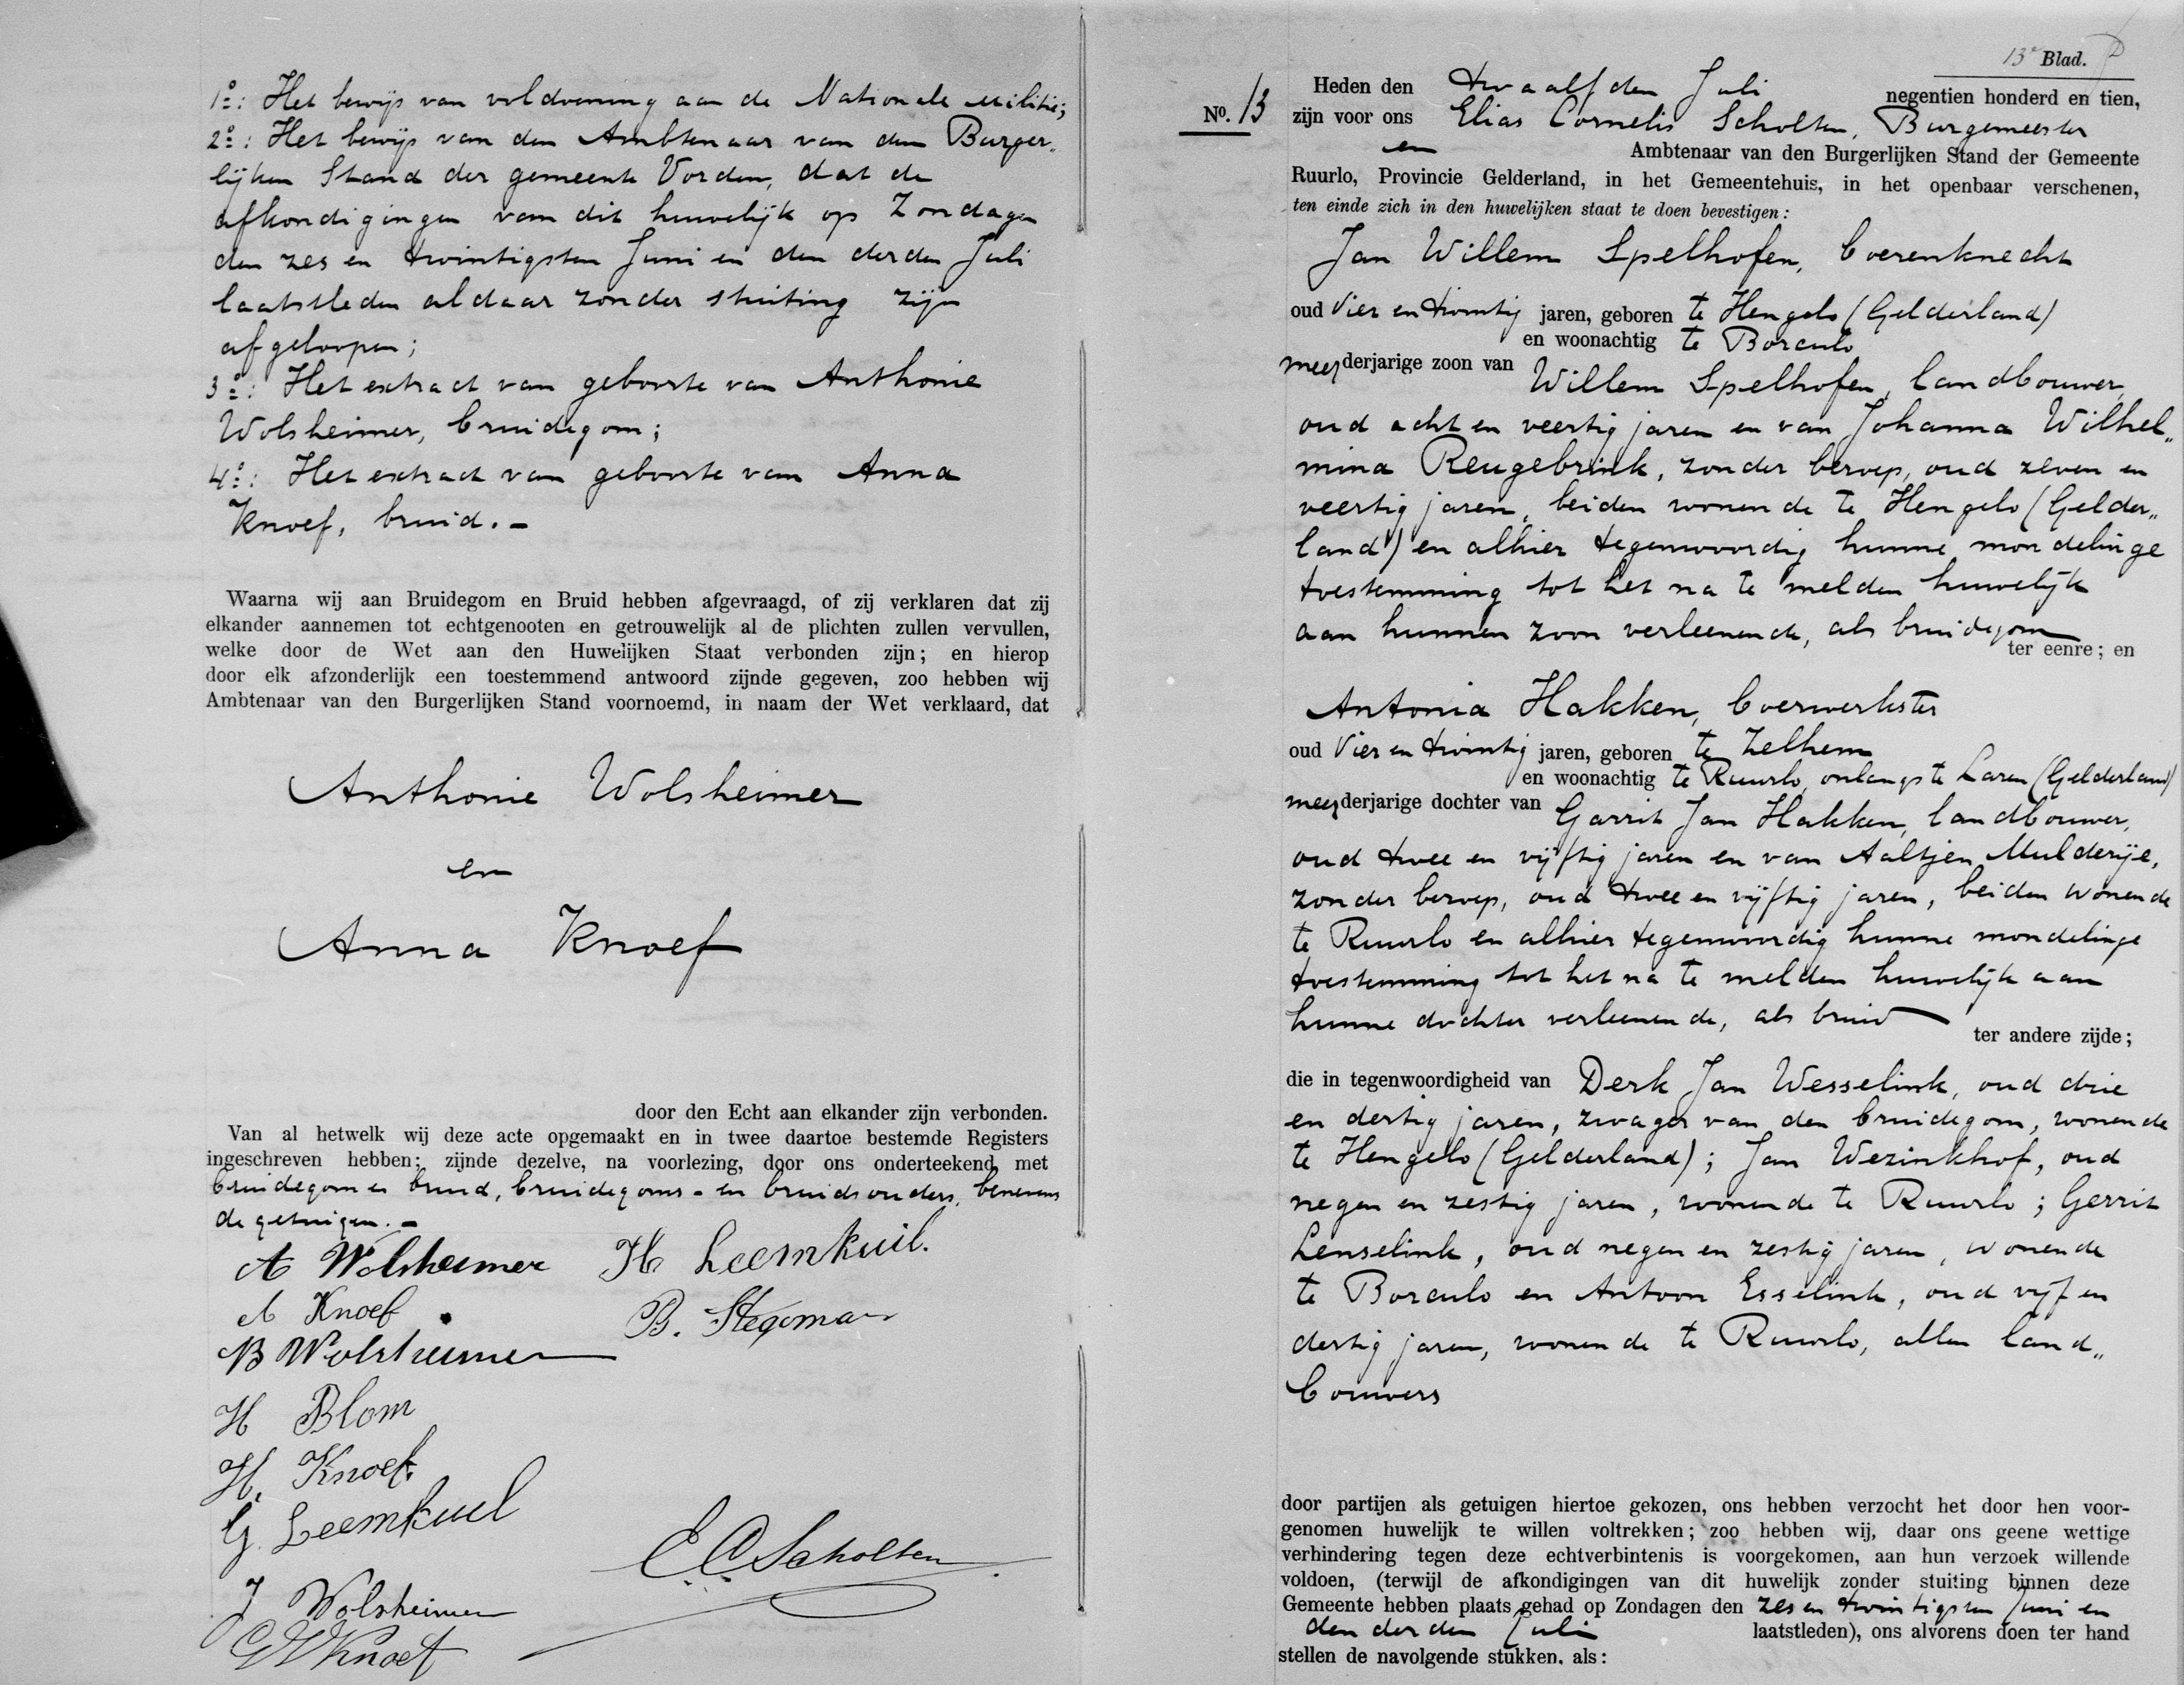 1º: Het bewijs van voldoening aan de Nationale Militie;
2º: Het bewijs van den Ambtenaar van den Burger„
lijken Stand der gemeente Vorden, dat de
afkondigingen van dit huwelijk op Zondagen
den zes en twintigsten Juni en den derden Juli
laatstleden aldaar zonder stuiting zijn
afgeloopen;
3º: Het extract van geboorte van Anthonie
Wolsheimer, bruidegom;
4º: Het extract van geboorte van Anna
Knoef, bruid. -
Waarna wij aan Bruidegom en Bruid hebben afgevraagd, of zij verklaren dat zij
elkander aannemen tot echtgenooten en getrouwelijk al de plichten zullen vervullen,
welke door de Wet aan den Huwelijken Staat verbonden zijn; en hierop
door elk afzonderlijk een toestemmend antwoord zijnde gegeven, zoo hebben wij
Ambtenaar van den Burgerlijken Stand voornoemd, in naam der Wet verklaard, dat
Anthonie Wolsheimer
en
Anna Knoef
door den Echt aan elkander zijn verbonden.
Van al hetwelk wij deze acte opgemaakt en in twee daartoe bestemde Registers
ingeschreven hebben; zijnde dezelve, na voorlezing, door ons onderteekend met
bruidegom en bruid, bruidegoms- en bruidsouders, benevens
de getuigen. -
A Wolsheimer H Leemkuil.
A Knoef B. Stegeman
B Wolsheimer
H Blom
H. Knoef.
G. Leemkuil
E.C. Scholten
J Wolsheimer
GW Knoef
13e Blad.
Nº. 13
Heden den twaalfden Juli negentien honderd en tien,
zijn voor ons Elias Cornelis Scholten, Burgemeester
en Ambtenaar van den Burgerlijken Stand der Gemeente
Ruurlo, Provincie Gelderland, in het Gemeentehuis, in het openbaar verschenen,
ten einde zich in den huwelijken staat te doen bevestigen:
Jan Willem Spelhofen, boerenknecht
oud vier en twintig jaren, geboren te Hengelo (Gelderland)
en woonachtig te Borculo
meerderjarige zoon van Willem Spelhofen, landbouwer,
oud acht en veertig jaren en van Johanna Wilhel„
mina Reugebrink, zonder beroep, oud zeven en
veertig jaren, beiden wonende te Hengelo (Gelder„
land) en alhier tegenwoordig hunne mondelinge
toestemming tot het na te melden huwelijk
aan hunnen zoon verleenende, als bruidegom
ter eenre; en
Antonia Hakken, boerwerkster
oud vier en twintig jaren, geboren te Zelhem
en woonachtig te Ruurlo, onlangs te Laren (Gelderland)
meerderjarige dochter van Garrit Jan Hakken, landbouwer,
oud twee en vijftig jaren en van Aaltjen Mulderije,
zonder beroep, oud twee en vijftig jaren, beiden wonende
te Ruurlo en alhier tegenwoordig hunne mondelinge
toestemming tot het na te melden huwelijk aan
hunne dochter verleenende, als bruid
ter andere zijde;
die in tegenwoordigheid van Derk Jan Wesselink, oud drie
en dertig jaren, zwager van den bruidegom, wonende
te Hengelo (Gelderland); Jan Wezinkhof, oud
negen en zestig jaren, wonende te Ruurlo; Gerrit
Lenselink, oud negen en zestig jaren, wonende
te Borculo en Antoon Esselink, oud vijf en
dertig jaren, wonende te Ruurlo, allen land„
bouwers
door partijen als getuigen hiertoe gekozen, ons hebben verzocht het door hen voor-
genomen huwelijk te willen voltrekken; zoo hebben wij, daar ons geene wettige
verhindering tegen deze echtverbintenis is voorgekomen, aan hun verzoek willende
voldoen, (terwijl de afkondigingen van dit huwelijk zonder stuiting binnen deze
Gemeente hebben plaats gehad op Zondagen den zes en twintigsten Juni en
den derden Juli laatstleden), ons alvorens doen ter hand
stellen de navolgende stukken, als: